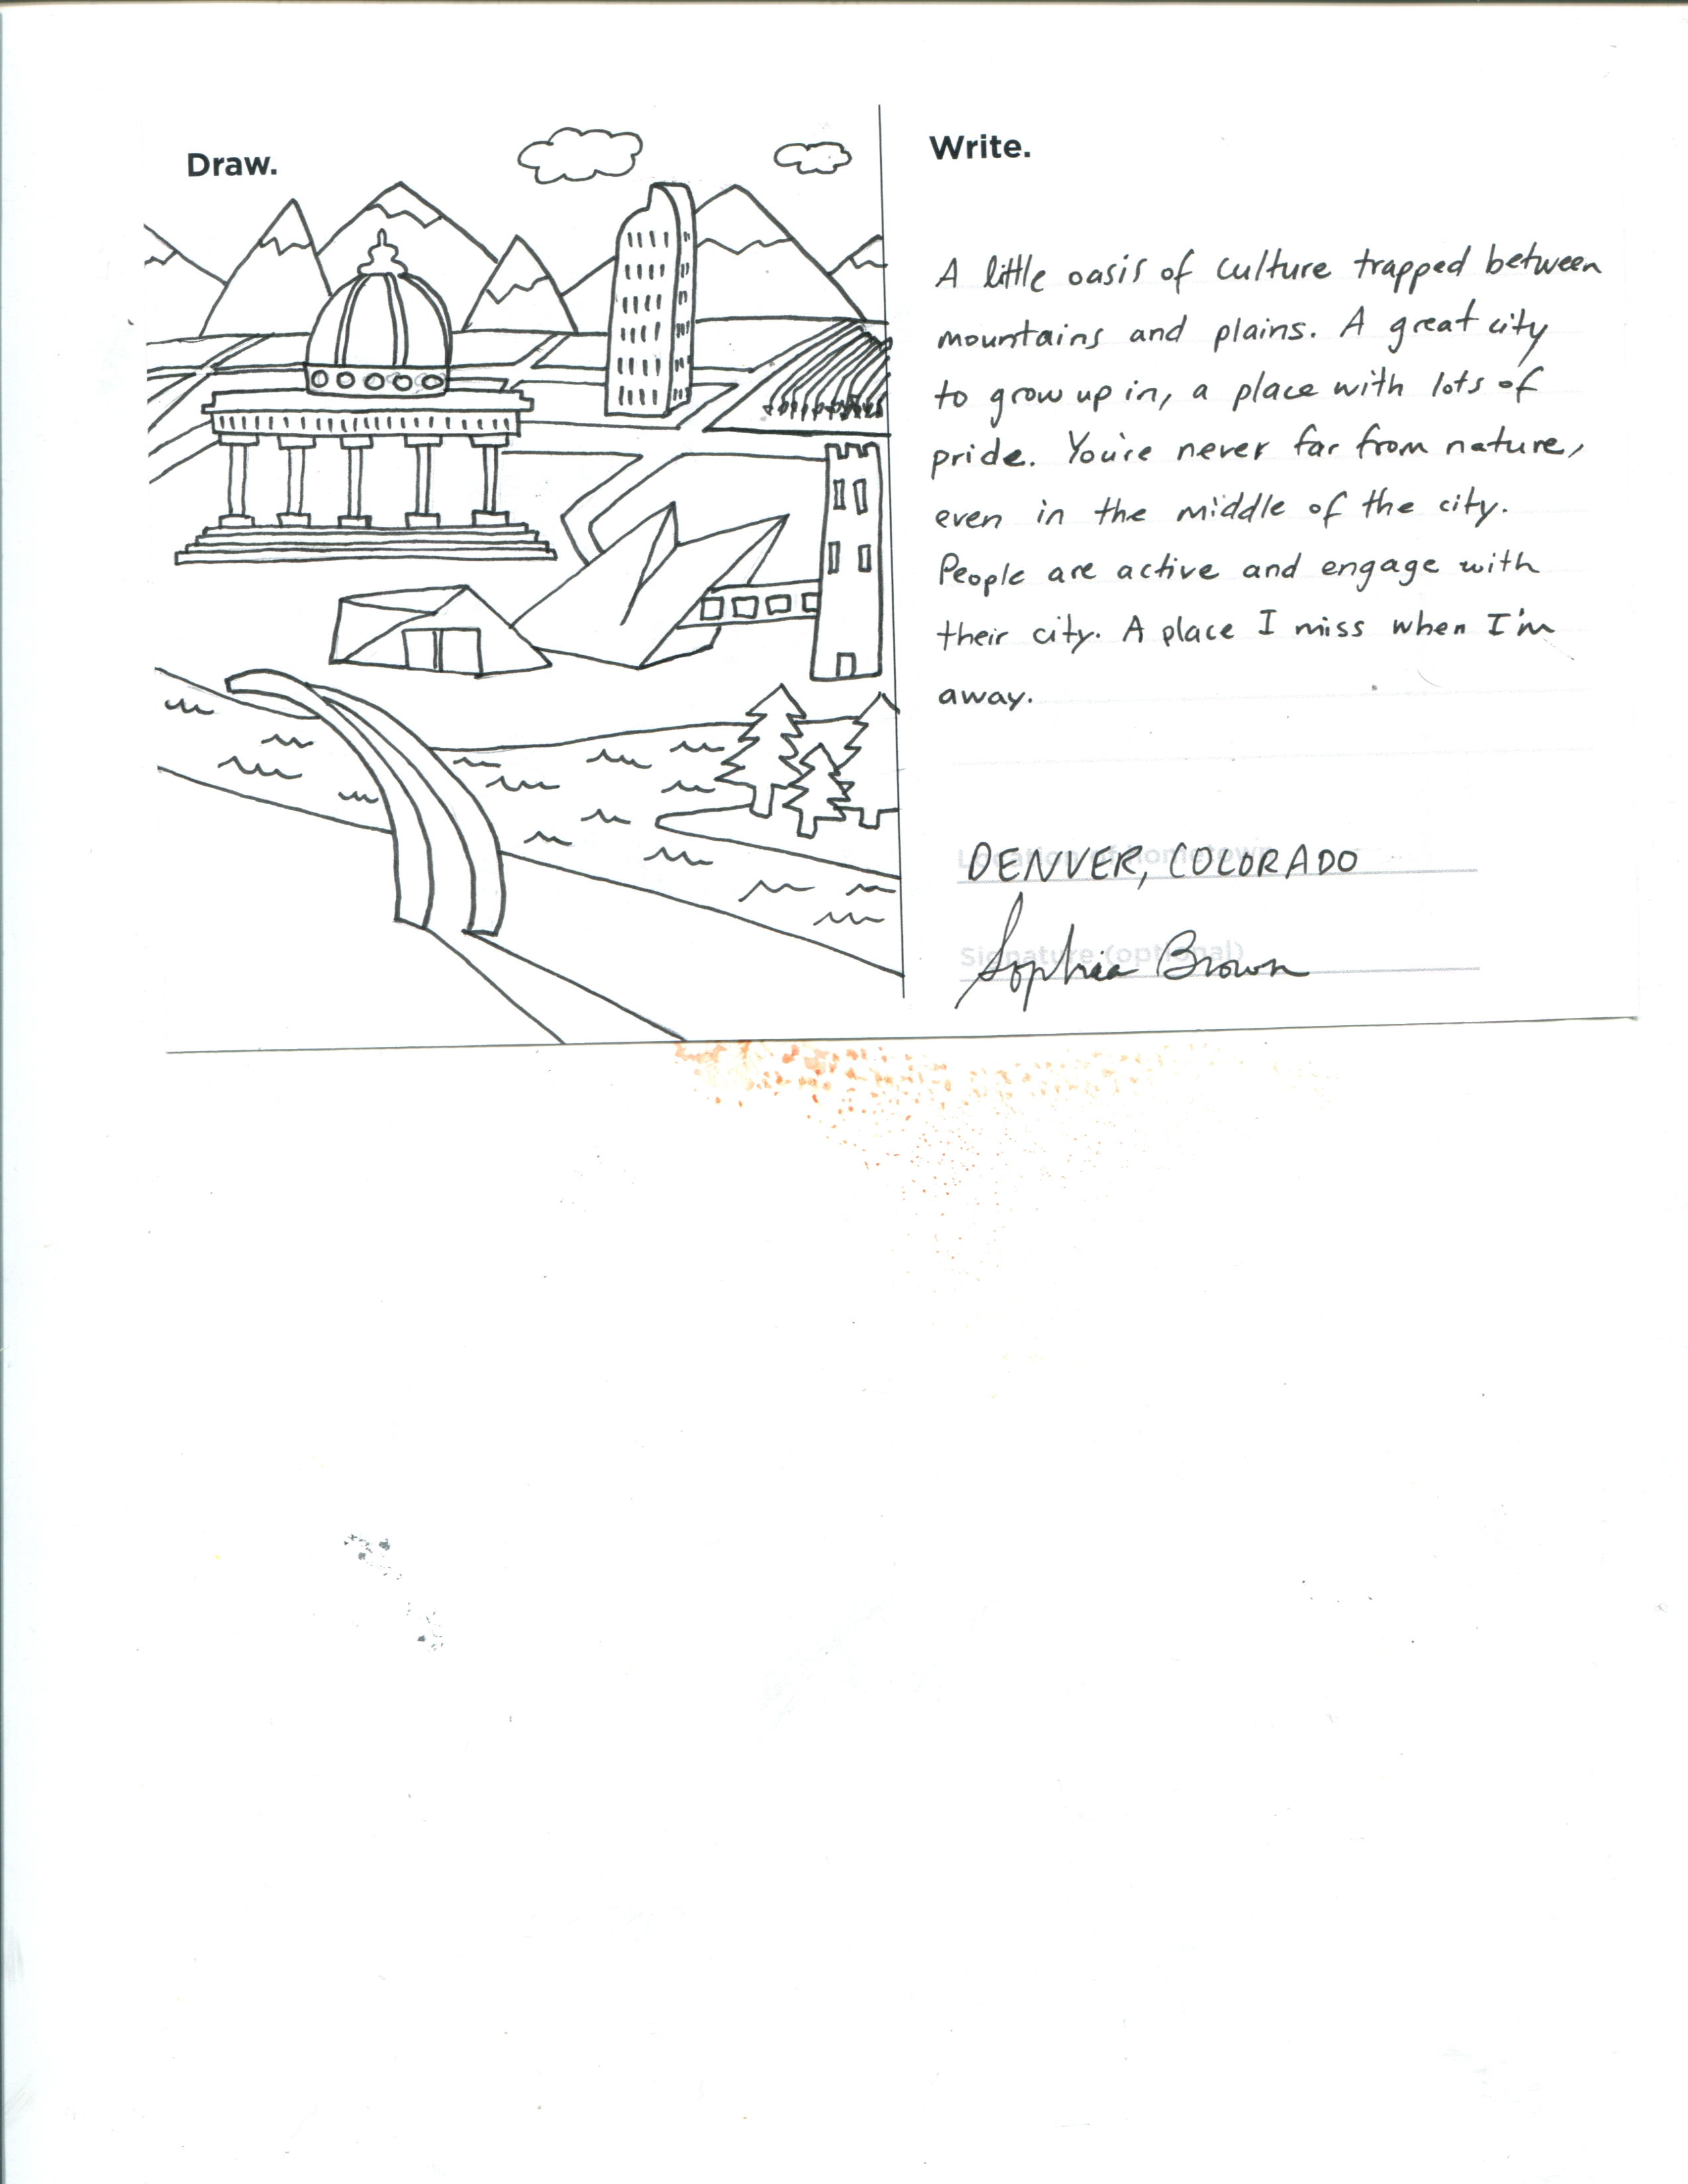 Draw.
Write.
A little oasis of culture trapped between
mountains and plains. A great city
to grow up in, a place with lots of
pride. You're never far from nature,
even in the middle of the city.
People are active and engage with
their city. A place I miss when I'm
away.
Location of hometown
DENVER, COLORADO
Signature (optional)
Sophia Brown